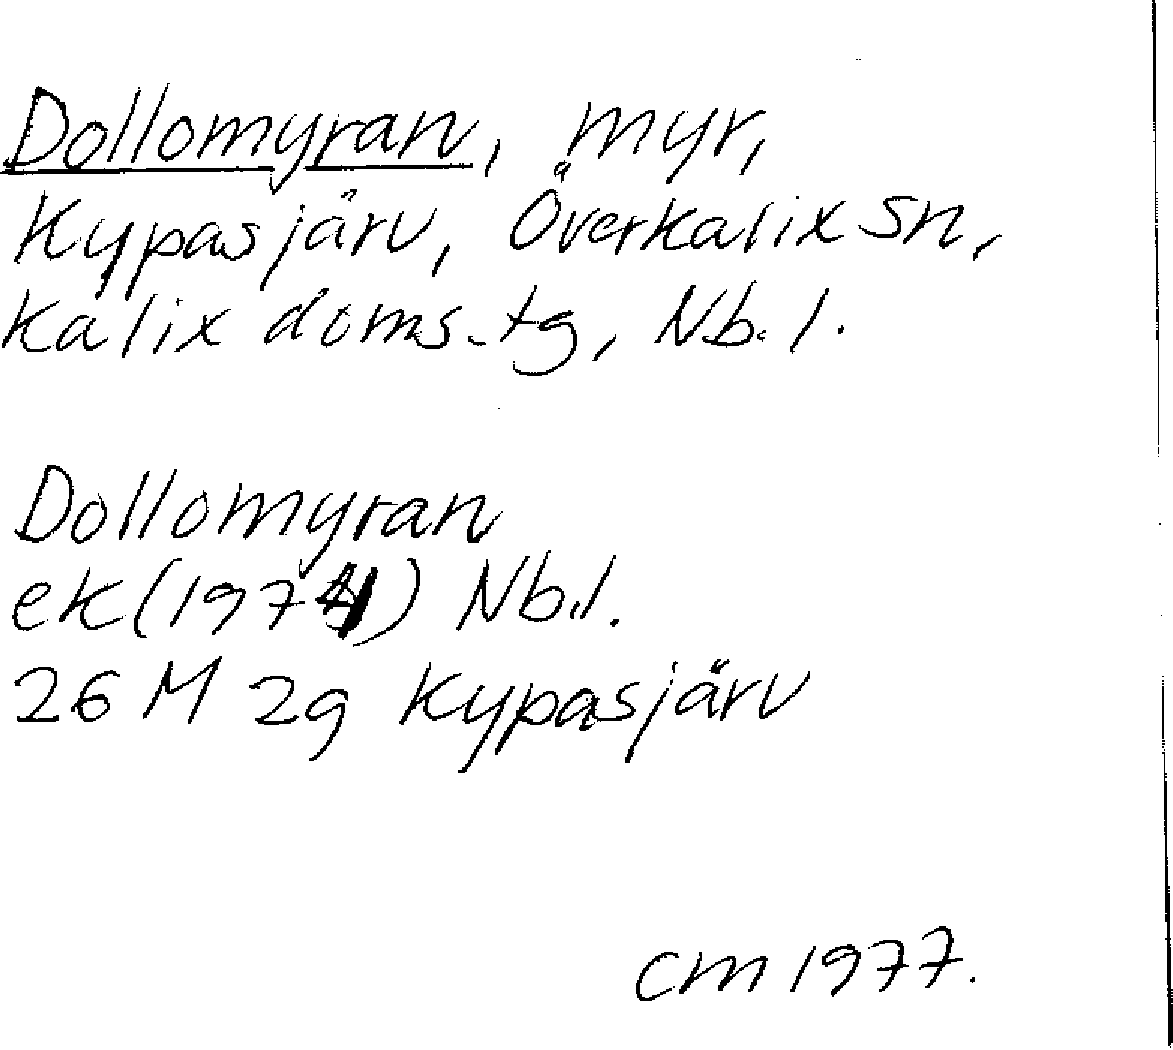 Dollomyran, myr,
Kypasjärv, Överkalix sn,
Kalix doms.tg, Nb.l.
Dollomyran
ek(1971) Nb.l.
26 M 2g Kypasjärv
CM 1977.